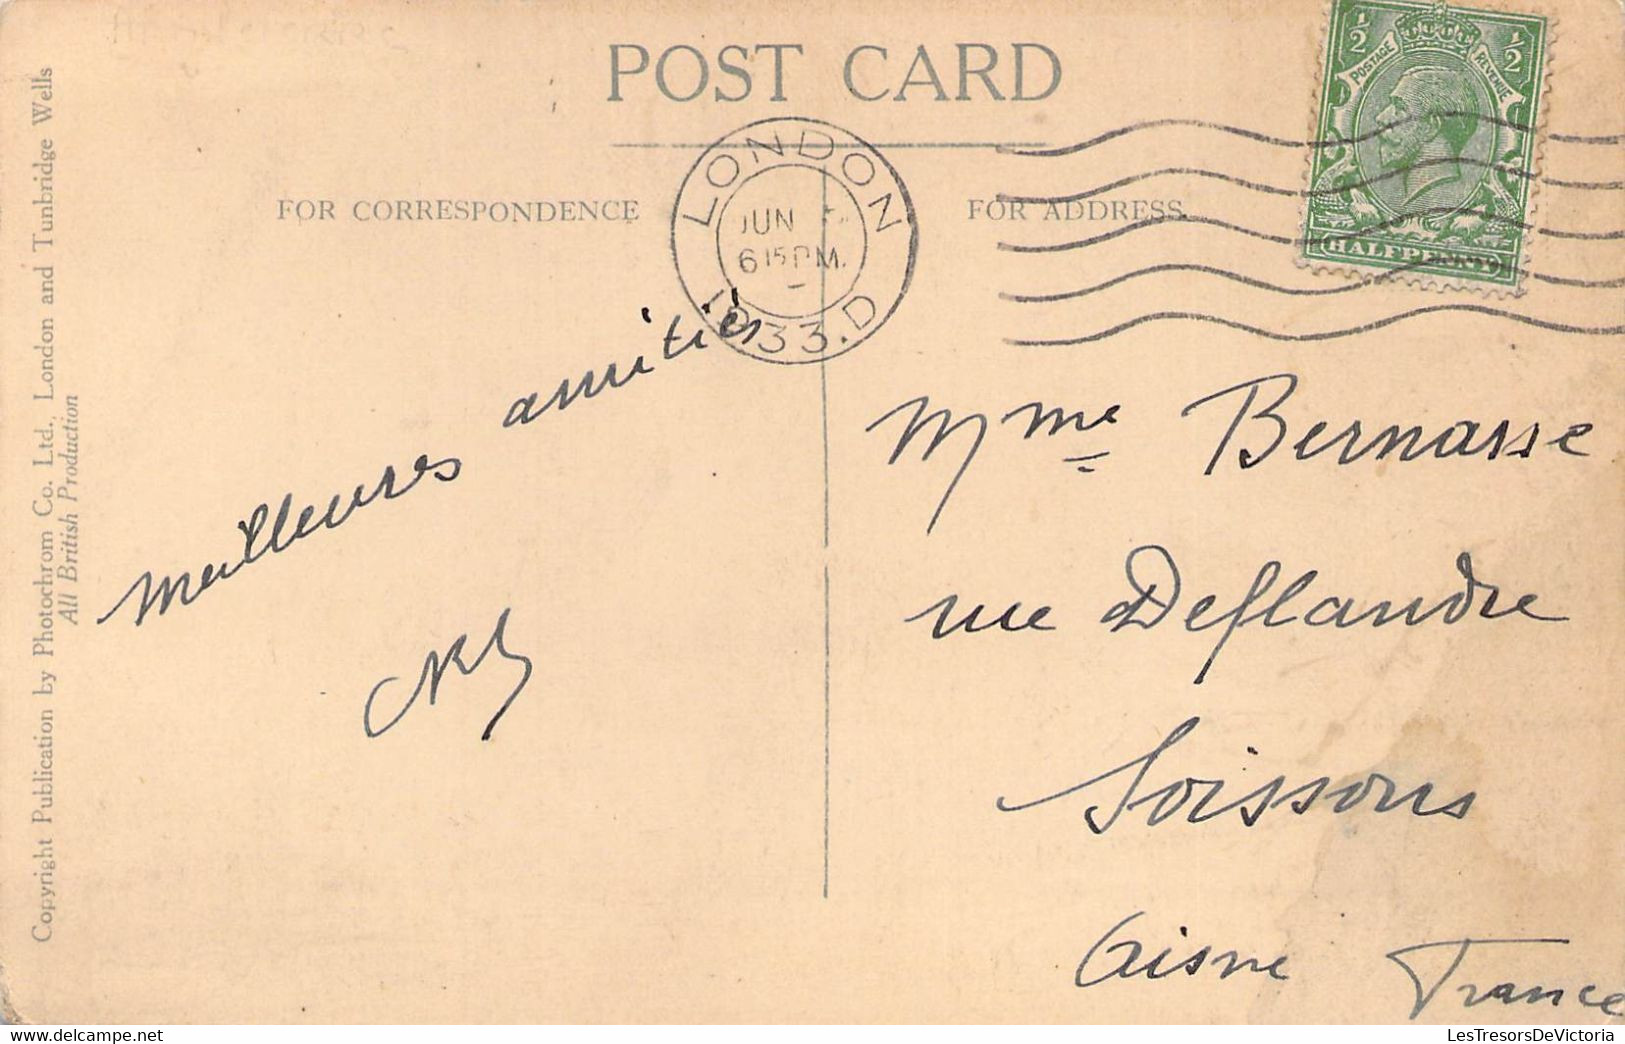 POST CARD
FOR CORRESPONDENCE
FOR ADDRESS
LONDON
JUN
6 15 PM
1933.D
½ ½
POSTAGE REVENUE
HALFPENNY
Meilleures amitiés
Mme Bernasse
rue Deflandre
Soissons
Aisne France
Copyright Publication by Photochrom Co. Ltd., London and Tunbridge Wells
All British Production
LesTresorsDeVictoria.com